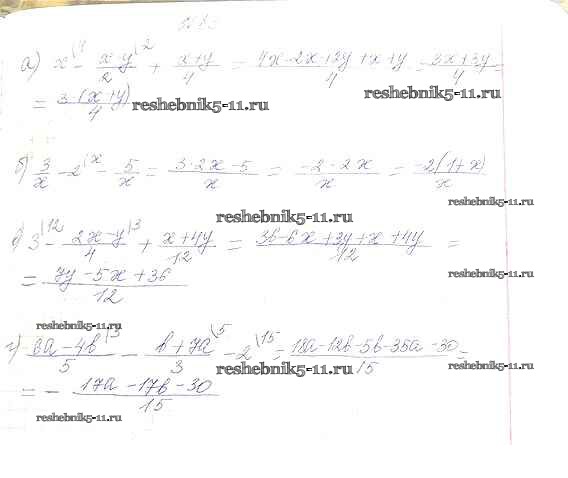 а) x\4 - x-y\2 / 2 + x+y / 4 = 4x-2x+2y+x+y / 4 = 3x+3y / 4 =
= 3(x+y) / 4
reshebnik5-11.ru
reshebnik5-11.ru
б) 3/x - 2\x - 5/x = 3-2x-5 / x = -2-2x / x = -2(1+x) / x
reshebnik5-11.ru
reshebnik5-11.ru
в) 3\12 - 2x-y\3 / 4 + x+4y / 12 = 36-6x+3y+x+4y / 12 =
= 7y-5x+36 / 12
reshebnik5-11.ru
reshebnik5-11.ru
г) 6a-4b\3 / 5 - b+7a\5 / 3 - 2\15 = 18a-12b-5b-35a-30 / 15 =
reshebnik5-11.ru
reshebnik5-11.ru
= - 17a-17b-30 / 15
reshebnik5-11.ru